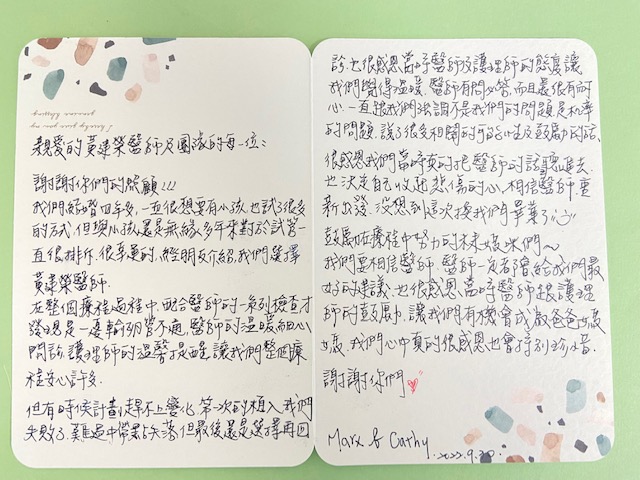 親愛的黃建榮醫師及團隊的每一位：
謝謝你們的照顧!!!
我們結婚四年多，一直很想要有小孩，也試了很多
的方式，但與小孩還是無緣，多年來對於試管一
直很排斥，很幸運的，經朋友介紹，我們選擇
黃建榮醫師.
在整個療程過程中，配合醫師的一系列檢查才
發現是一邊輸卵管不通，醫師的溫暖、細心
問診，護理師的溫馨提醒，讓我們整個療
程安心許多.
但有時候計劃趕不上變化，第一次的植入我們
失敗了，難過中帶點失落，但最後還是選擇再回
診，也很感恩當時醫師及護理師的態度讓
我們覺得溫暖，醫師有問必答，而且還很有耐
心，一直跟我們強調不是我們的問題是机率
的問題，說了很多相關的可能性及鼓勵的話，
很感恩我們當時真的把醫師的話聽進去，
也決定自己收起悲傷的心，相信醫師，重
新出發，沒想到這次換我們畢業了
鼓勵在療程中努力的未來媽咪們～
我們要相信醫師，醫師一定會給我們最
好的建議，也很感恩當時醫師跟護理
師的鼓勵，讓我們有機會成為爸爸媽
媽，我們心中真的很感恩也會特別珍惜.
謝謝你們
Marx & Cathy.
2022.9.30.